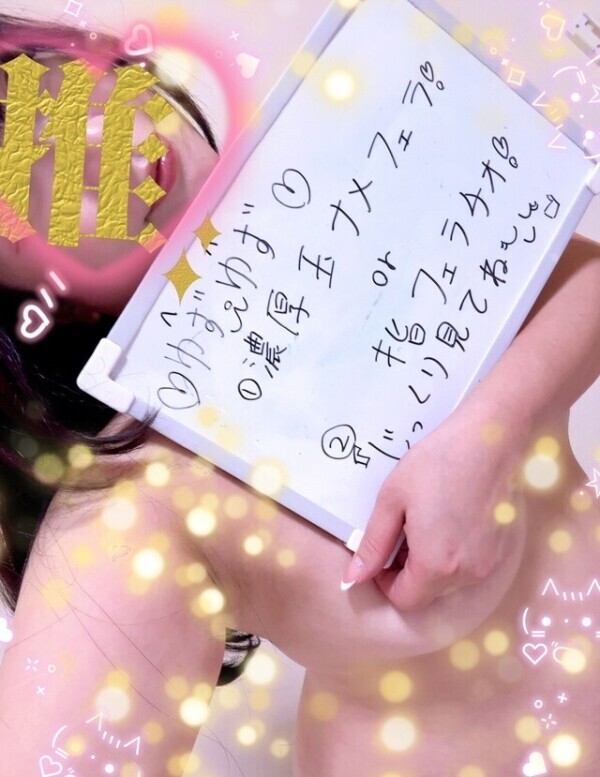 姫
♡ゆずぴゆず♡
①濃厚玉ナメフェラ♡
or
②指フェラチオ♡
じっくり見てね